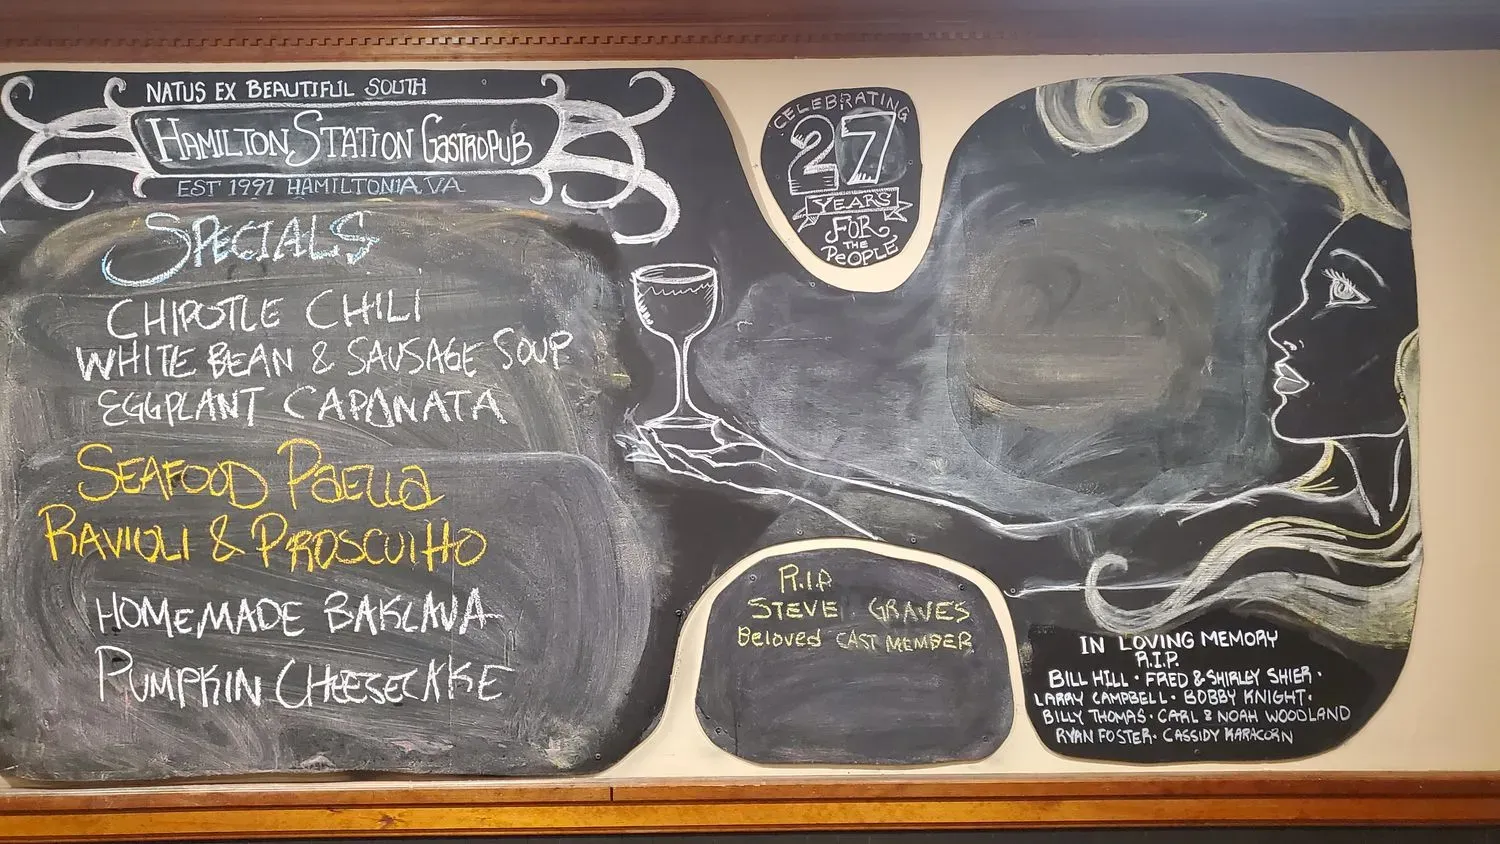 NATUS EX BEAUTIFUL SOUTH
HAMILTON STATION GASTROPUB
EST 1991 HAMILTON VA, VA
SPECIALS
CHIPOTLE CHILI
WHITE BEAN & SAUSAGE SOUP
EGGPLANT CAPONATA
SEAFOOD PaELLa
RAVIOLI & PROSCUITTO
HOMEMADE BAKLAVA
PUMPKIN CHEESECAKE
CELEBRATING
27
YEARS
FOR
THE
PeOPLE
R.I.P
STEVE GRAVES
Beloved CAST MEMBER
IN LOVING MEMORY
R.I.P.
BILL HILL · FRED & SHIRLEY SHIER ·
LARRY CAMPBELL · BOBBY KNIGHT ·
BILLY THOMAS · CARL & NOAH WOODLAND
RYAN FOSTER · CASSIDY KARACORN